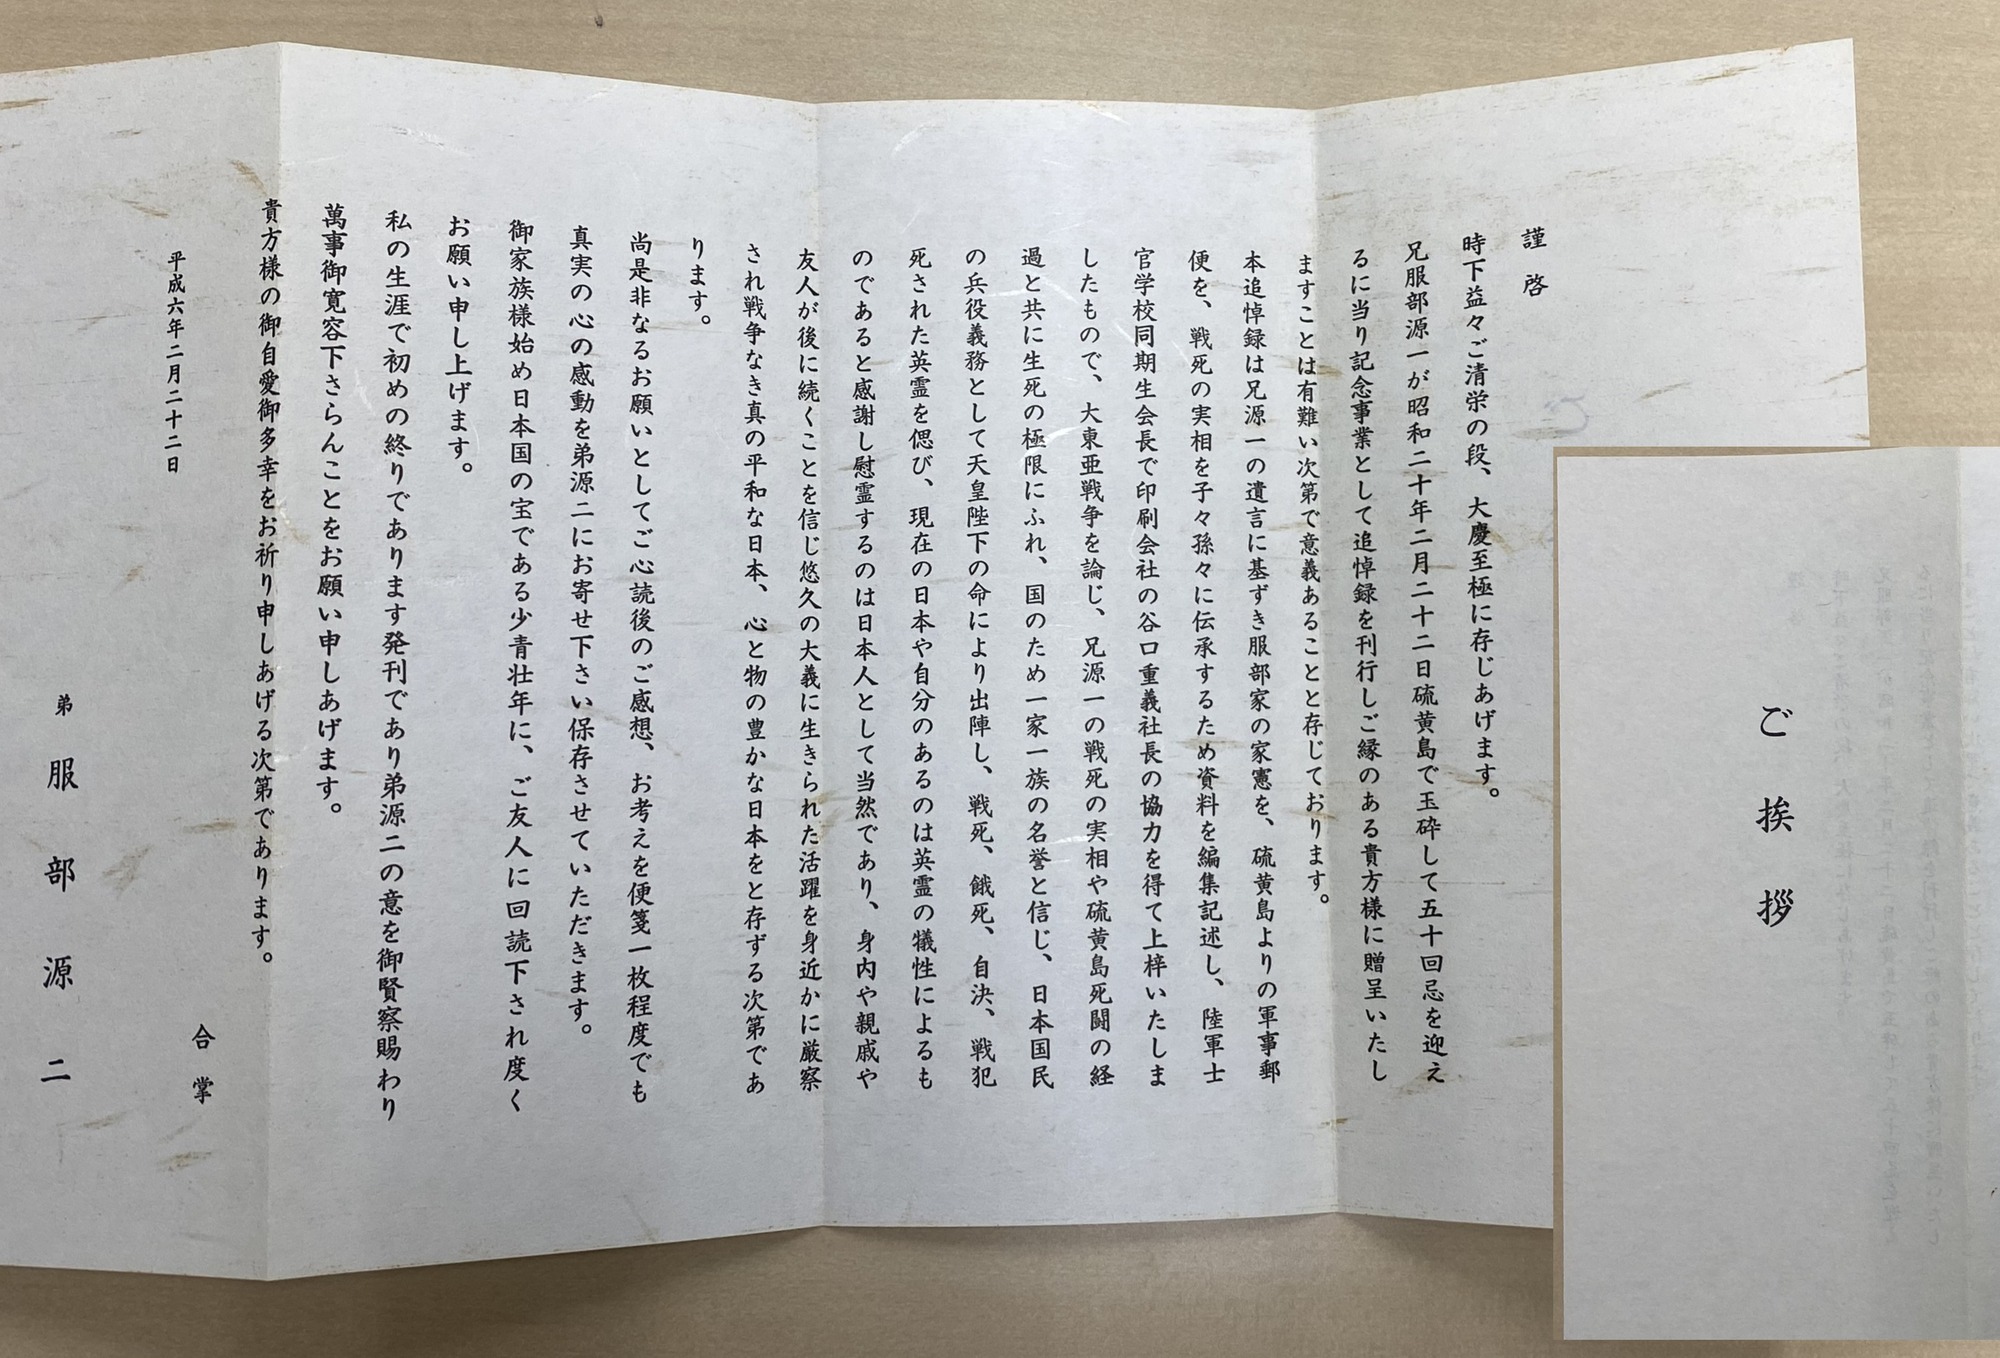 ご挨拶
謹啓
時下益々ご清栄の段、大慶至極に存じあげます。
兄服部源一が昭和二十年二月二十二日硫黄島で玉砕して五十回忌を迎え
るに当り記念事業として追悼録を刊行しご縁のある貴方様に贈呈いたし
ますことは有難い次第で意義あることと存じております。
本追悼録は兄源一の遺言に基ずき服部家の家憲を、硫黄島よりの軍事郵
便を、戦死の実相を子々孫々に伝承するため資料を編集記述し、陸軍士
官学校同期生会長で印刷会社の谷口重義社長の協力を得て上梓いたしま
したもので、大東亜戦争を論じ、兄源一の戦死の実相や硫黄島死闘の経
過と共に生死の極限にふれ、国のため一家一族の名誉と信じ、日本国民
の兵役義務として天皇陛下の命により出陣し、戦死、餓死、自決、戦犯
死された英霊を偲び、現在の日本や自分のあるのは英霊の犠性によるも
のであると感謝し慰霊するのは日本人として当然であり、身内や親戚や
友人が後に続くことを信じ悠久の大義に生きられた活躍を身近かに厳察
され戦争なき真の平和な日本、心と物の豊かな日本をと存ずる次第であ
ります。
尚是非なるお願いとしてご心読後のご感想、お考えを便箋一枚程度でも
真実の心の感動を弟源二にお寄せ下さい保存させていただきます。
御家族様始め日本国の宝である少青壮年に、ご友人に回読下され度く
お願い申し上げます。
私の生涯で初めの終りであります発刊であり弟源二の意を御賢察賜わり
萬事御寛容下さらんことをお願い申しあげます。
貴方様の御自愛御多幸をお祈り申しあげる次第であります。
合掌
平成六年二月二十二日
弟 服部源二